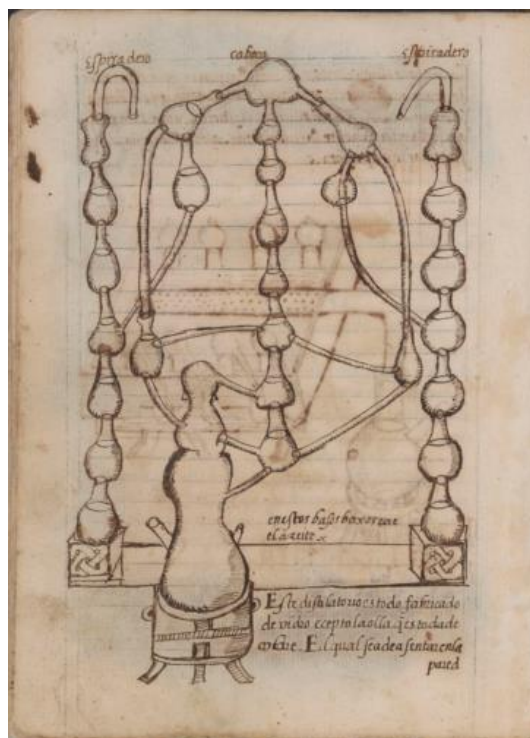 espiradero
cabeça
espiradero
en estos basos baxos cae
el azeite
Este distilatorio es todo fabricado
de vidro ecepto la olla q̃ es toda de
cobre. El qual se a de asentar en la
pared